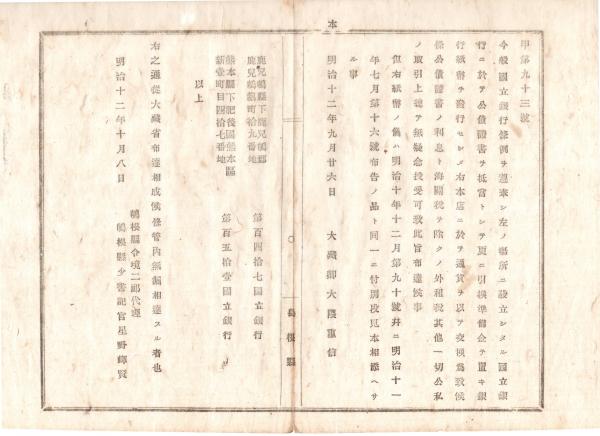 本
甲第九十三號
今般國立銀行條例ヲ遵奉シ左ノ場所ニ設立シタル國立銀
行ニ於テ公債證書ヲ抵當トシテ更ニ引換準備金ヲ置キ銀
行紙幣ヲ發行セシメ右本店ニ於テ通貨ヲ以テ交換爲致候
條公債證書ノ利息ト海關稅ヲ除クノ外租稅其他一切公私
ノ取引上總テ無疑念授受可致此旨布達候事
但右紙幣ノ儀ハ明治十年十二月第九十號幷ニ明治十一
年七月第十六號布告ノ品ト同一ニ付別段見本相添ヘサ
ル事
明治十二年九月廿六日 大藏卿大隈重信
島根縣
鹿兒嶋縣下鹿兒嶋郡
鹿兒嶋 町拾九番地 第百四拾七國立銀行
熊本縣下肥後國熊本區
新壹町目四拾七番地 第百五拾壹國立銀行
以上
右之通從大藏省布達相成候條管內無漏相達スル者也
明治十二年十月八日 嶋根縣令境二郎代理
嶋根縣少書記官星野輝賢